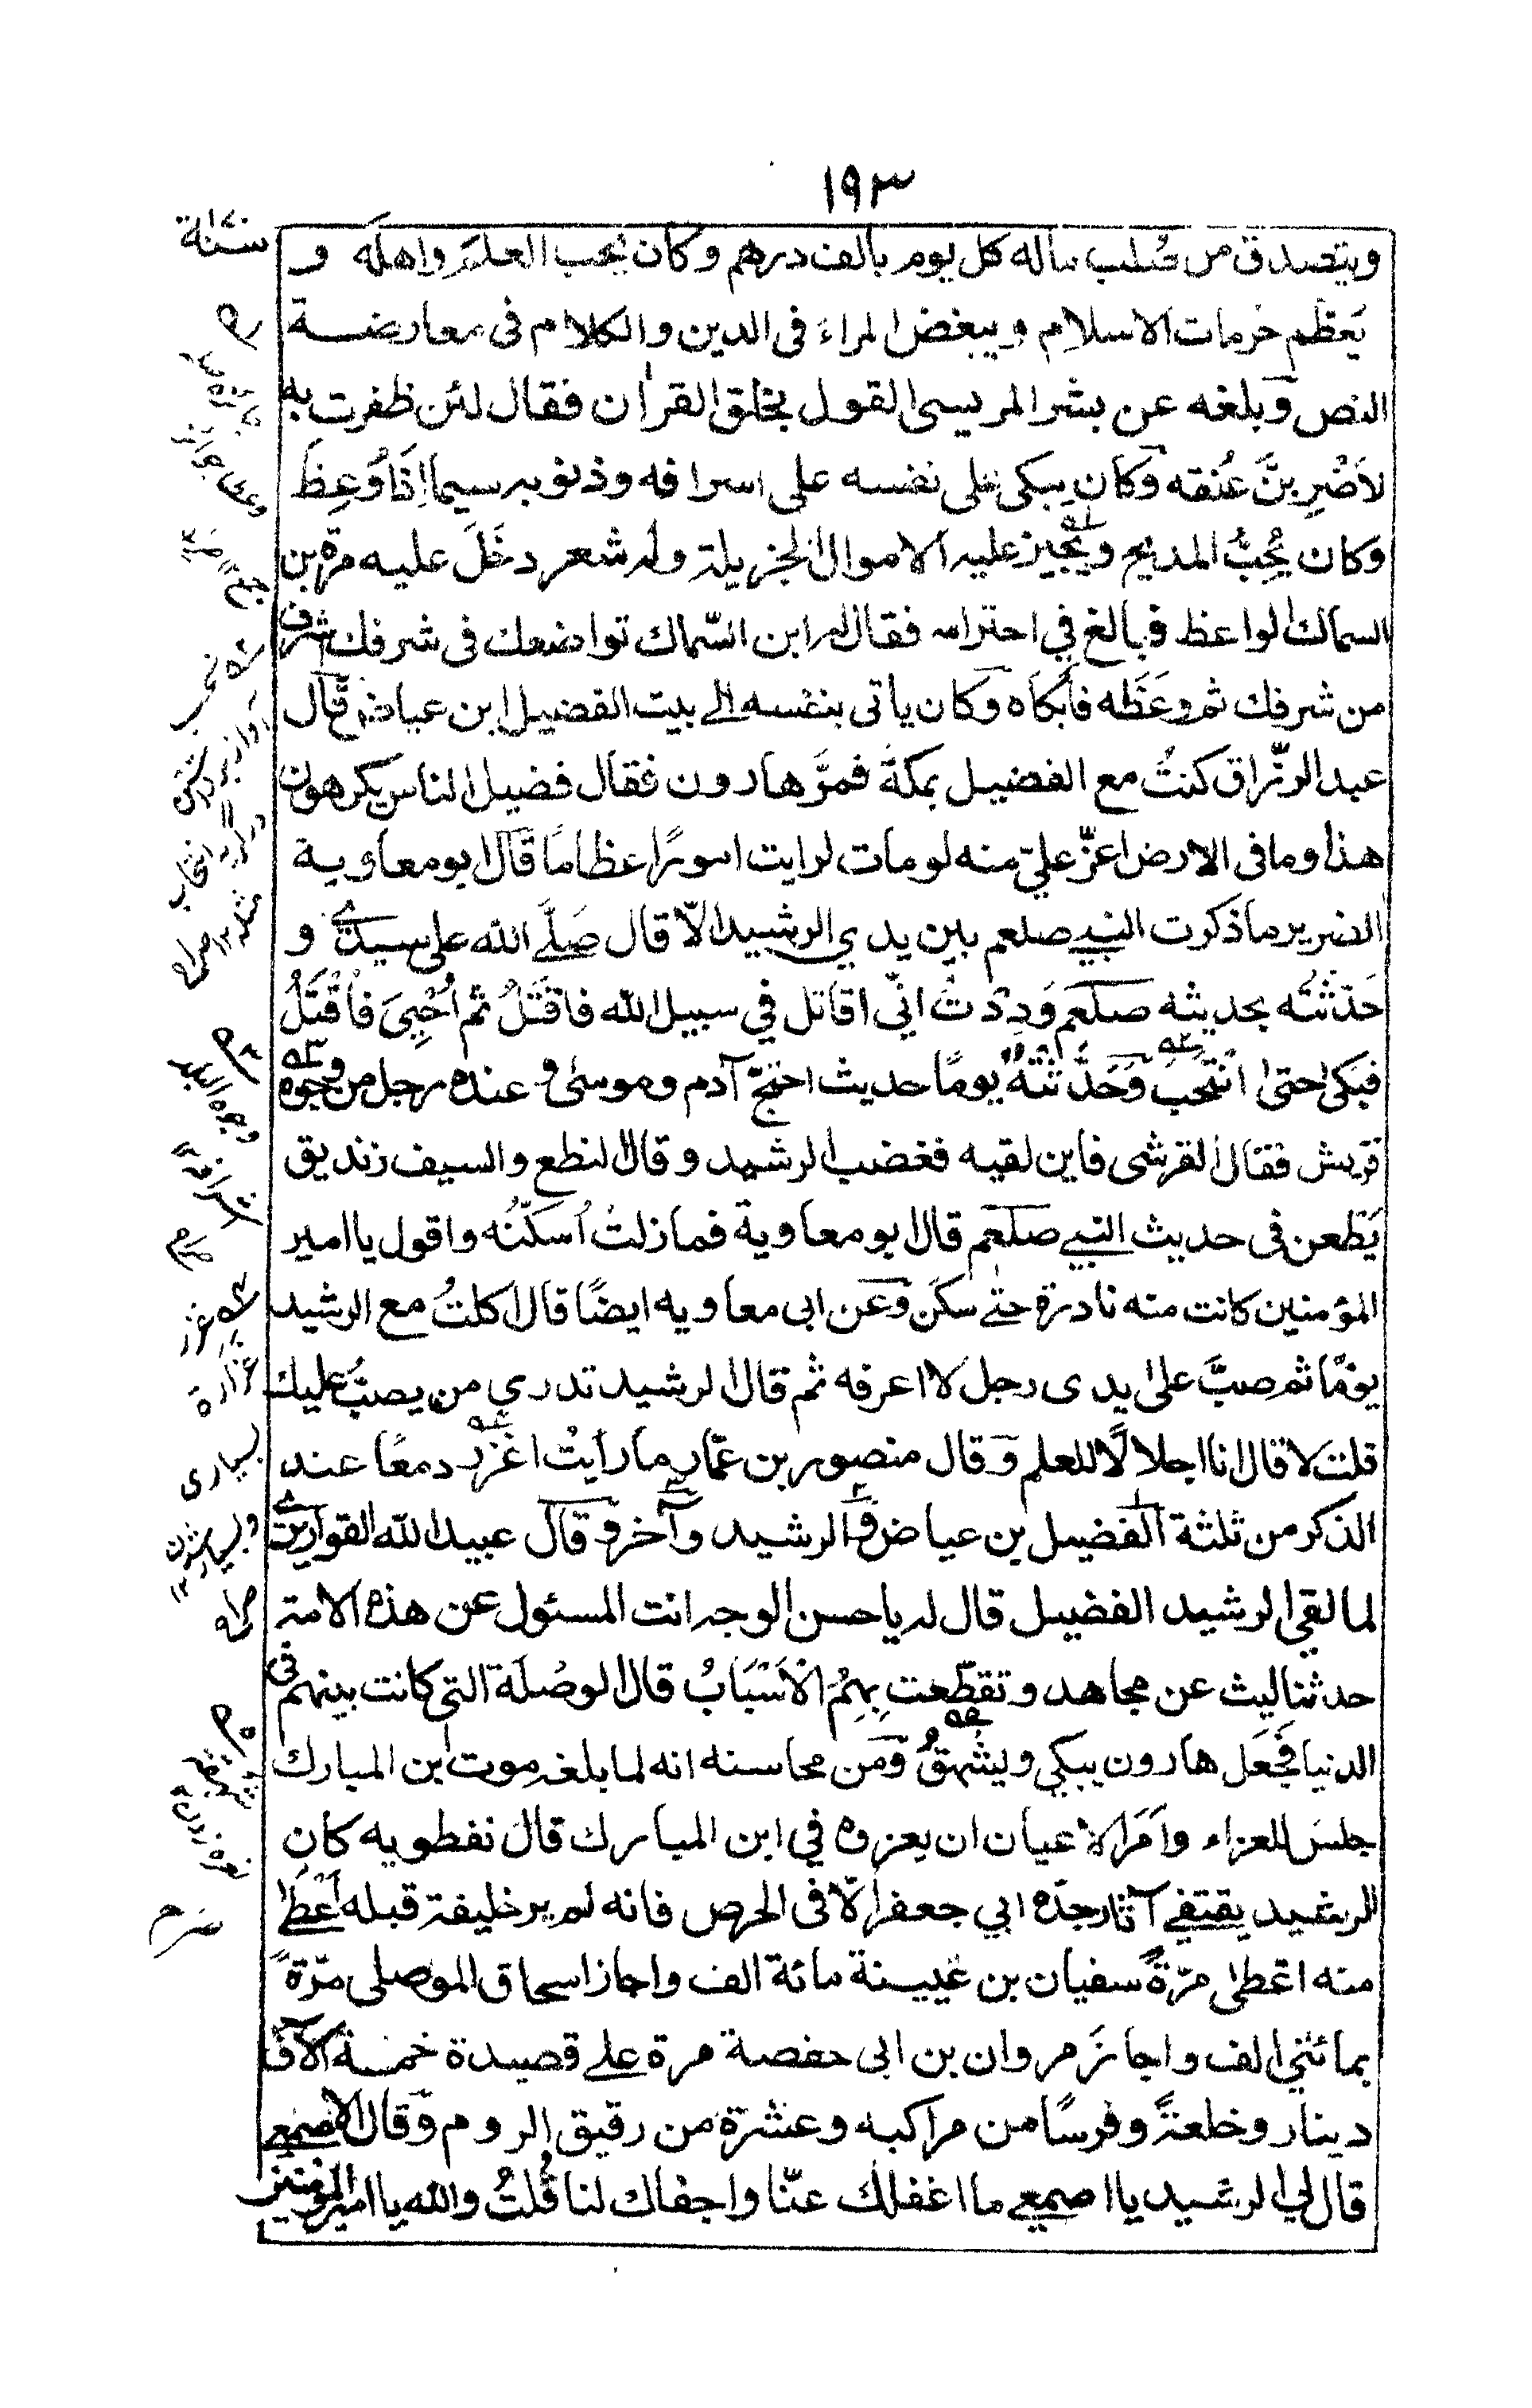 ١٩٣
سنة ١٧٠
ويتصدق من صُلب ماله كل يوم بالف درهم وكان يُحب العلمَ واهلَه و
يَعظّم حُرمات الاسلام ويبغض المراءَ فى الدين والكلام فى معارضة
النص وبلغه عن بشر المريسى القول بخلق القران فقال لئن ظفرت به
لاَضْرِبنَّ عُنقه وكان يبكى على نفسه على اسرافه وذنوبه سيما اِذَا وُعِظَ
وكان يُحِبُّ المديح ويُجيز عليه الاموال الجزيلة وله شعر دخَلَ عليه مرة ابن
السماك الواعظ فبالغ في احترامه فقال له ابن السّماك تواضعك فى شرفك اشرف
من شرفك ثم وعَظَه فأبكاه وكان ياتى بنفسه الے بيت الفضيل ابن عياض قال
عبد الرزّاق كنتُ مع الفضيل بمكة فمرَّ هارون فقال فضيل الناس يكرهون
هذا وما فى الارض اعزّ عليّ منه لو مات لرايت امورًا عظامًا قال ابو معاوية
الضرير ما ذكرت النبي صلعم بين يدي الرشيد الّا قال صَلَّے الله على سيدے و
حَدّثتُه بحديثه صلعم وَدِدْتُ انّى اقاتل في سبيل الله فاقتَلُ ثم اُحْيىَ فاُقْتَلُ
فبكى حتى انْتَحَبَ وَحَدَّثتُهُ يومًا حديث احتجّ آدم وموسى و عنده رجل من وجوه
قريش فقال القرشى فاين لقيه فغضب الرشيد وقال النطع والسيف زنديق
يَطعن فى حديث النبي صلعم قال ابو معاوية فما زلتُ اُسكّنُه واقول يا امير
المؤمنين كانت منه نادرة حتے سكَن وعَن ابى معاويه ايضًا قال اكلتُ مع الرشيد
يومًا ثم صبَّ على يدى رجل لا اعرفه ثم قال الرشيد تدري من يصبّ عليك
قلت لا قال انا اجلالًا للعلم وقال منصور بن عمّار ما رأيتُ اغزر دمعًا عند
الذكر من ثلثة الفضيل بن عياض و الرشيد و آخر و قال عبيد الله القواريرے
لما لقي الرشيد الفضيل قال له يا حسن الوجه انت المسئول عن هذه الامة
حدثنا ليث عن مجاهد وتقطّعت بِهِمُ الْاَسْبَابُ قال الوصُلَة التى كانت بينهم فى
الدنيا فجَعَل هارون يبكي ويشهقُ ومَن محاسنه انه لما بلغه موت ابن المبارك
جلسَ للعزاء وأمَرَ الاعيان ان يعزوه في ابن المبارك قال نفطويه كان
الرشيد يقتفے آثار جدّه ابي جعفر الّا فى الحرص فانه لم ير خليفة قبله اَعْطَے
منه اعطى مرّةً سفيان بن عُيينة مائة الف واجاز اسحاق الموصلى مرّةً
بمائتي الف واجازَ مروان بن ابى حفصة مرة علے قصيدة خمسة آلاف
دينار وخلعةً وفرسًا من مراكبه وعشرة من رقيق الروم وقال الاصمعے
قال لي الرشيد يا اصمعے ما اغفلك عنّا واجفاك لنا قُلتُ والله يا امير المؤمنين